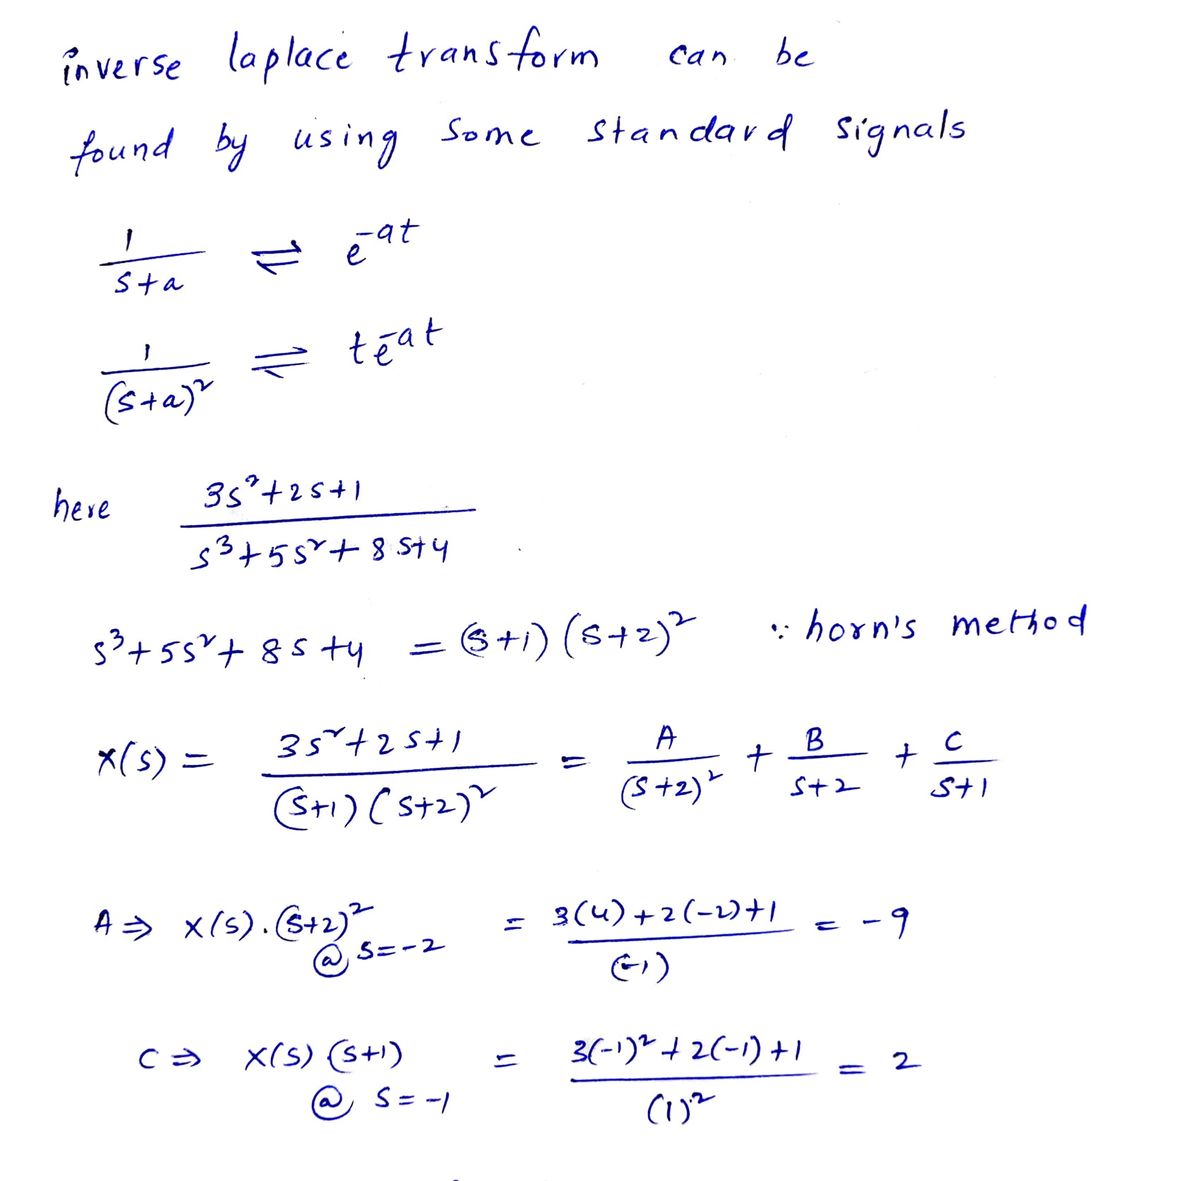 inverse laplace transform can be
found by using some standard signals
1/(s+a) ⇌ e^-at
1/(s+a)² ⇌ te^-at
here (3s²+2s+1)/(s³+5s²+8s+4)
s³+5s²+8s+4 = (s+1)(s+2)² ∵ horn's method
x(s) = (3s²+2s+1)/((s+1)(s+2)²) = A/(s+2)² + B/(s+2) + C/(s+1)
A ⇒ x(s).(s+2)² @ s=-2 = (3(4)+2(-2)+1)/(-1) = -9
C ⇒ x(s)(s+1) @ s=-1 = (3(-1)²+2(-1)+1)/(1)² = 2